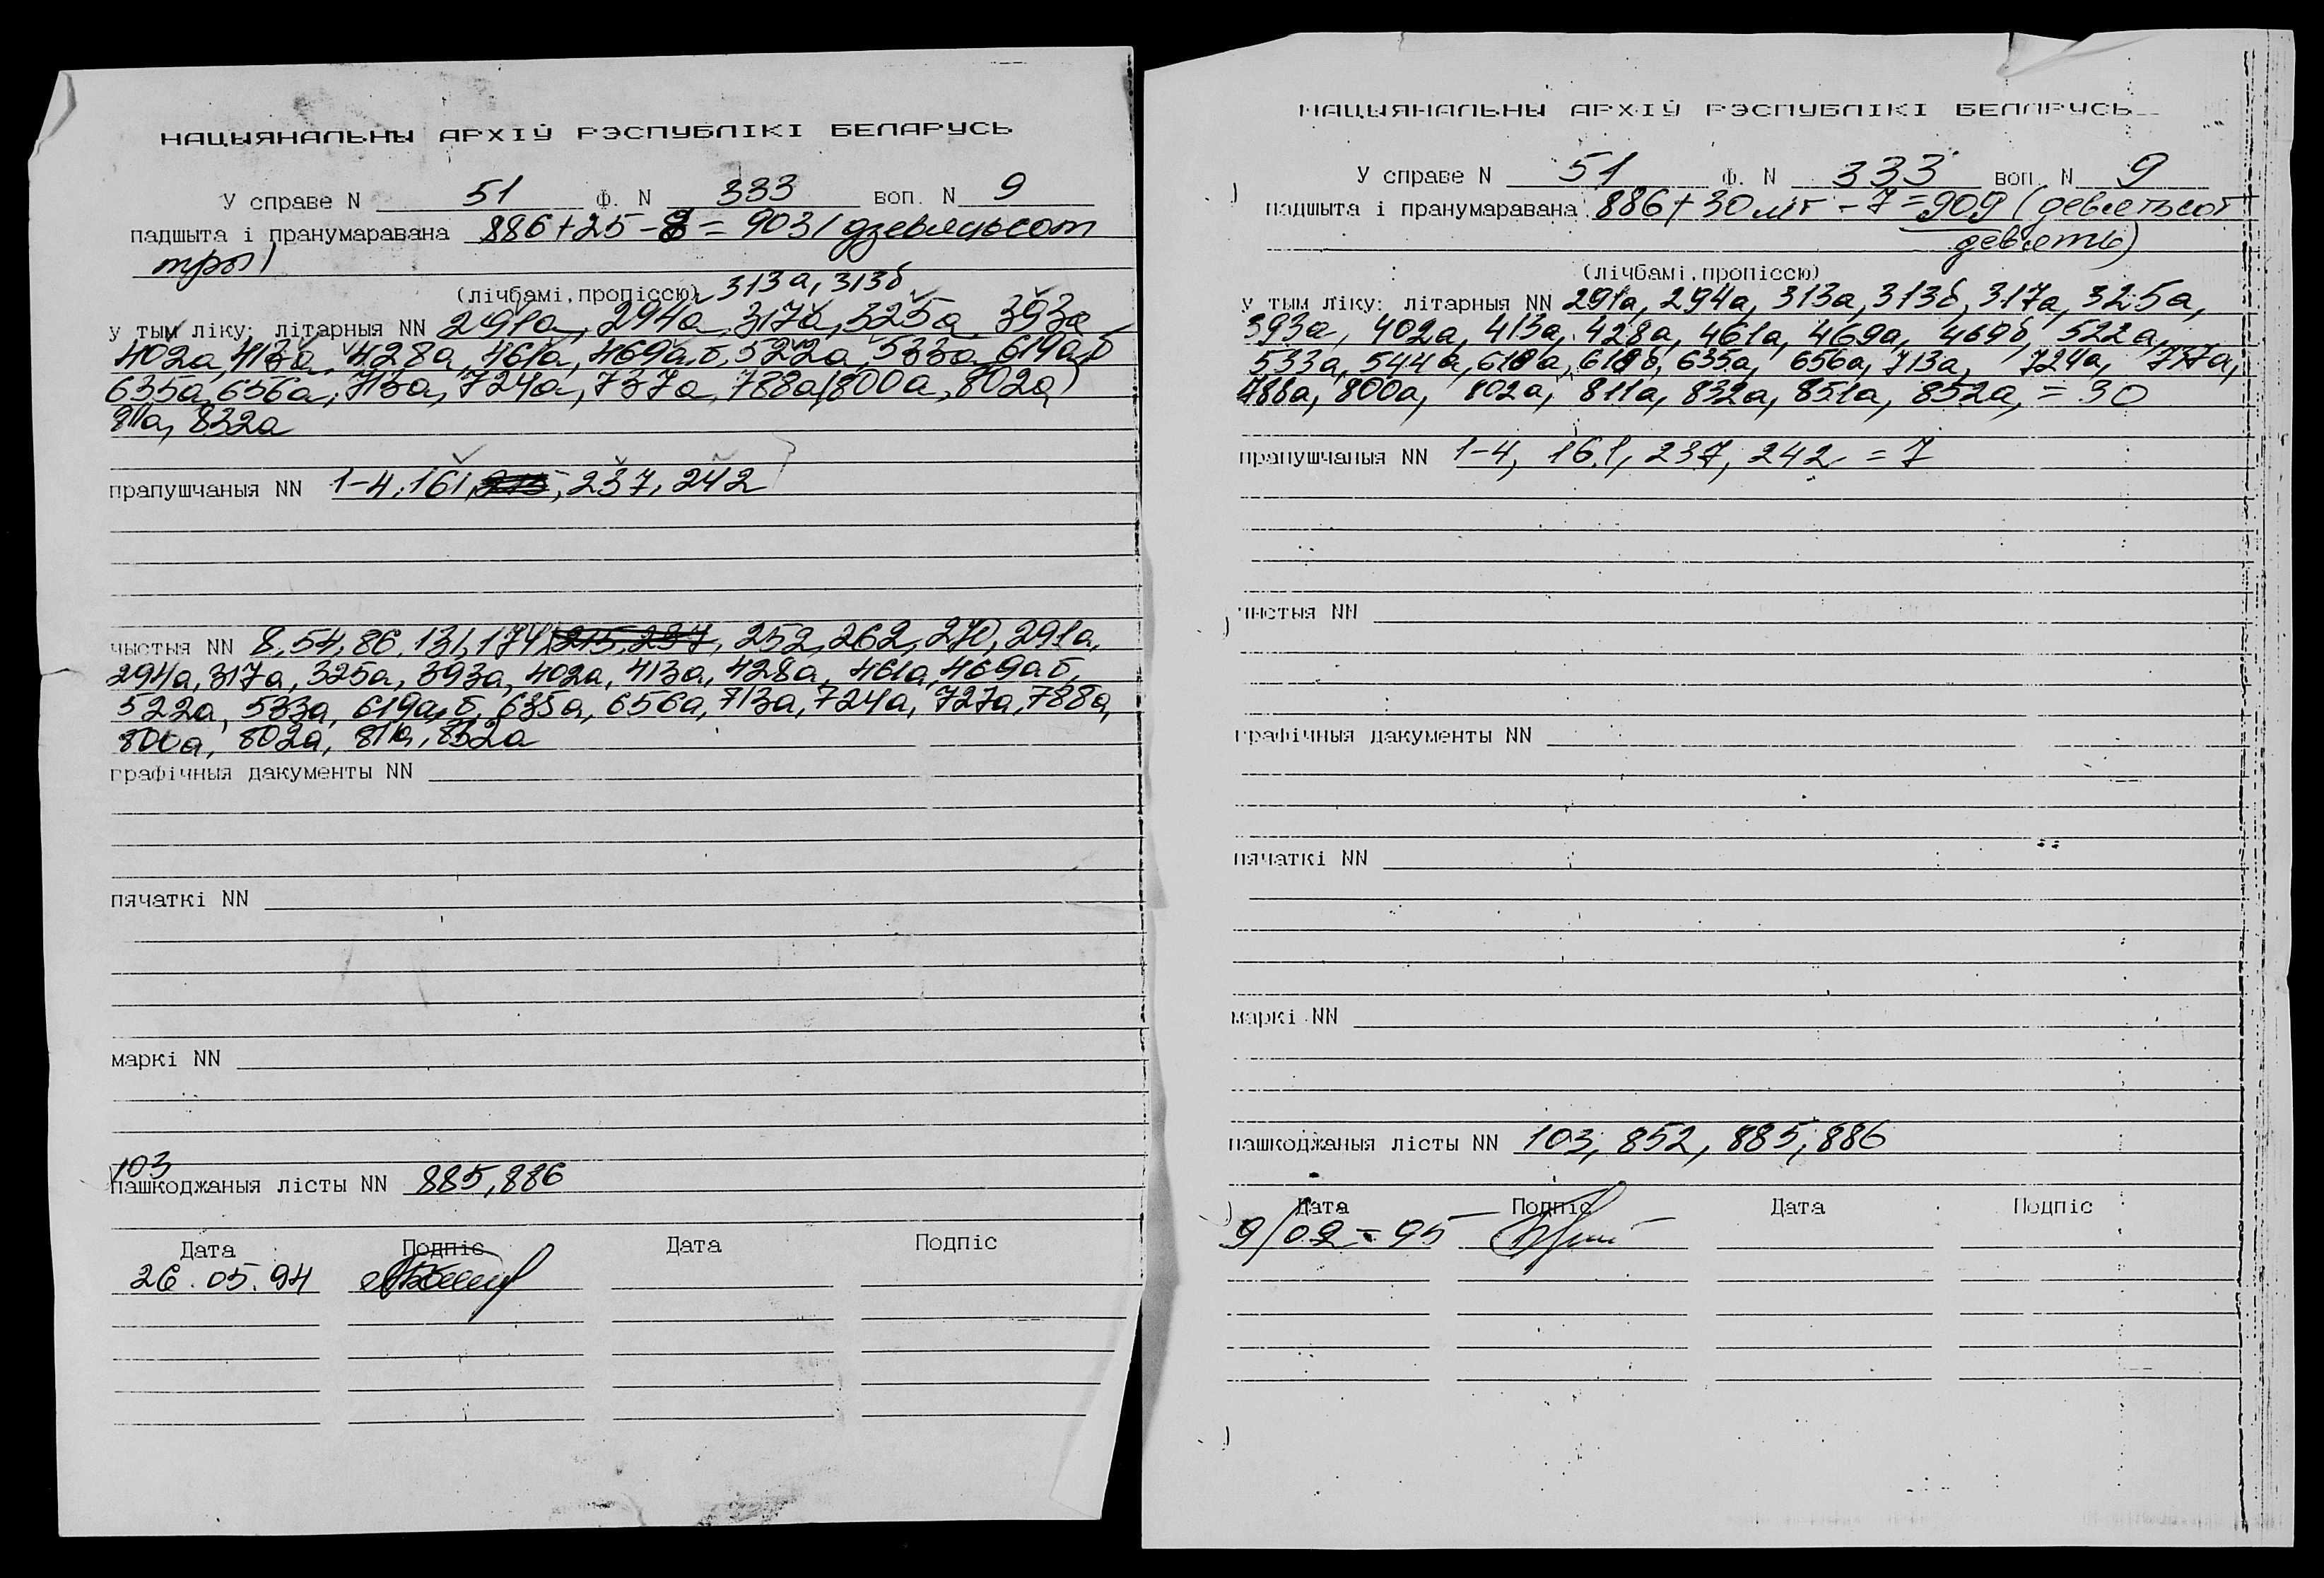 НАЦЫЯНАЛЬНЫ АРХІЎ РЭСПУБЛІКІ БЕЛАРУСЬ
У справе N 51 Ф. N 333 воп. N 9
падшыта і пранумаравана 886+25-8=903 (дзевяцьсот
тры)
(лічбамі, пропіссю) 313а, 313б
у тым ліку: літарныя NN 291а, 294а, 317а, 325а, 393а
402а, 413а, 428а, 461а, 469а,б, 522а, 533а, 619а,б
635а, 656а, 713а, 724а, 737а, 788а (800а, 802а)
811а, 832а
прапушчаныя NN 1-4, 161, 215, 237, 242
чыстыя NN 8, 54, 86, 131, 174, 215, 237, 252, 262, 270, 291а,
294а, 317а, 325а, 393а, 402а, 413а, 428а, 461а, 469а б,
522а, 533а, 619а,б, 635а, 656а, 713а, 724а, 727а, 788а,
800а, 802а, 811а, 832а
графічныя дакументы NN
пячаткі NN
маркі NN
103
пашкоджаныя лісты NN 885, 886
Дата Подпіс Дата Подпіс
26.05.94
НАЦЫЯНАЛЬНЫ АРХІЎ РЭСПУБЛІКІ БЕЛАРУСЬ
У справе N 51 Ф. N 333 воп. N 9
падшыта і пранумаравана 886+30 лит -7=909 (девятьсот
девять)
(лічбамі, пропіссю)
у тым ліку: літарныя NN 291а, 294а, 313а, 313б, 317а, 325а,
393а, 402а, 413а, 428а, 461а, 469а, 469б, 522а,
533а, 544а, 619а, 619б, 635а, 656а, 713а, 724а, 737а,
788а, 800а, 802а, 811а, 832а, 851а, 852а, = 30
прапушчаныя NN 1-4, 161, 237, 242 = 7
чыстыя NN
графічныя дакументы NN
пячаткі NN
маркі NN
пашкоджаныя лісты NN 103, 852, 885, 886
Дата Подпіс Дата Подпіс
9/02-95